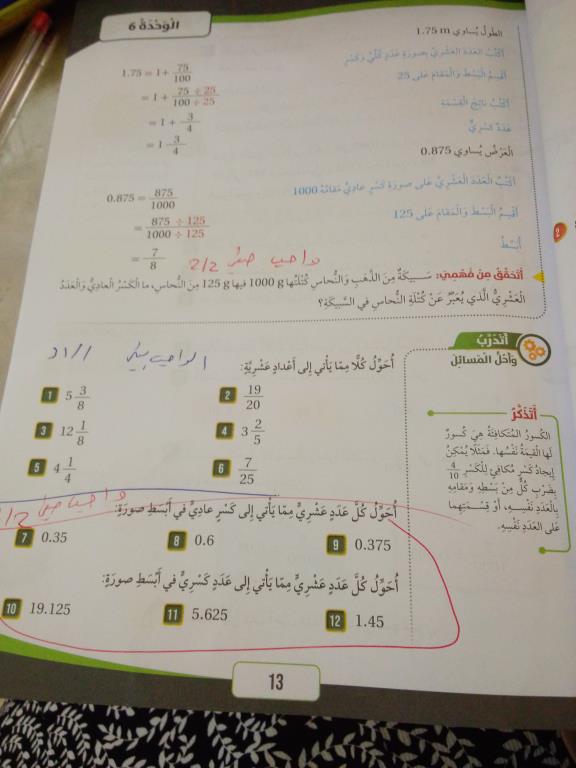 الْوَحْدَةُ 6
الطولُ يُساوي 1.75 m
أَكْتُبُ الْعَدَدَ الْعَشْرِيَّ بِصورَةِ عَدَدٍ كُلِّيٍّ وَكَسْرٍ
1.75 = 1 + 75/100
أَقْسِمُ الْبَسْطَ وَالْمَقامَ عَلى 25
= 1 + 75 ÷ 25/100 ÷ 25
أَكْتُبُ ناتِجَ الْقِسْمَةِ
= 1 + 3/4
عَدَدٌ كَسْرِيٌّ
= 1 3/4
الْعَرْضُ يُساوي 0.875
أَكْتُبُ الْعَدَدَ الْعَشْرِيَّ عَلى صورَةِ كَسْرٍ عادِيٍّ مَقامُهُ 1000
0.875 = 875/1000
أَقْسِمُ الْبَسْطَ وَالْمَقامَ عَلى 125
= 875 ÷ 125/1000 ÷ 125
أُبَسِّطُ
= 7/8
واجب صفي 2/2
أَتَحَقَّقُ مِنْ فَهْمِيَ: سَبيكَةٌ مِنَ الذَّهَبِ وَالنُّحاسِ كُتْلَتُها 1000 g فيها 125 g مِنَ النُّحاسِ، ما الْكَسْرُ الْعادِيُّ وَالْعَدَدُ
الْعَشْرِيُّ الَّذي يُعَبِّرُ عَنْ كُتْلَةِ النُّحاسِ في السَّبيكَةِ؟
أَتَدَرَّبُ
وَأَحُلُّ الْمَسائِلَ
أُحَوِّلُ كُلًّا مِمّا يَأْتي إِلى أَعْدادٍ عَشْرِيَّةٍ:
1 5 3/8
2 19/20
3 12 1/8
4 3 2/5
5 4 1/4
6 7/25
أَتَذَكَّرُ
الكُسورُ الْمُتَكافِئَةُ هِيَ كُسورٌ
لَها الْقيمَةُ نَفْسُها. فَمَثَلًا يُمْكِنُ
إيجادُ كَسْرٍ مُكافِئٍ لِلْكَسْرِ 4/10
بِضَرْبِ كُلٍّ مِنْ بَسْطِهِ وَمَقامِهِ
بِالْعَدَدِ نَفْسِهِ، أَوْ قِسْمَتِهِما
عَلى الْعَدَدِ نَفْسِهِ.
أُحَوِّلُ كُلَّ عَدَدٍ عَشْرِيٍّ مِمّا يَأْتي إِلى كَسْرٍ عادِيٍّ في أَبْسَطِ صورَةٍ:
7 0.35
8 0.6
9 0.375
أُحَوِّلُ كُلَّ عَدَدٍ عَشْرِيٍّ مِمّا يَأْتي إِلى عَدَدٍ كَسْرِيٍّ في أَبْسَطِ صورَةٍ:
10 19.125
11 5.625
12 1.45
13